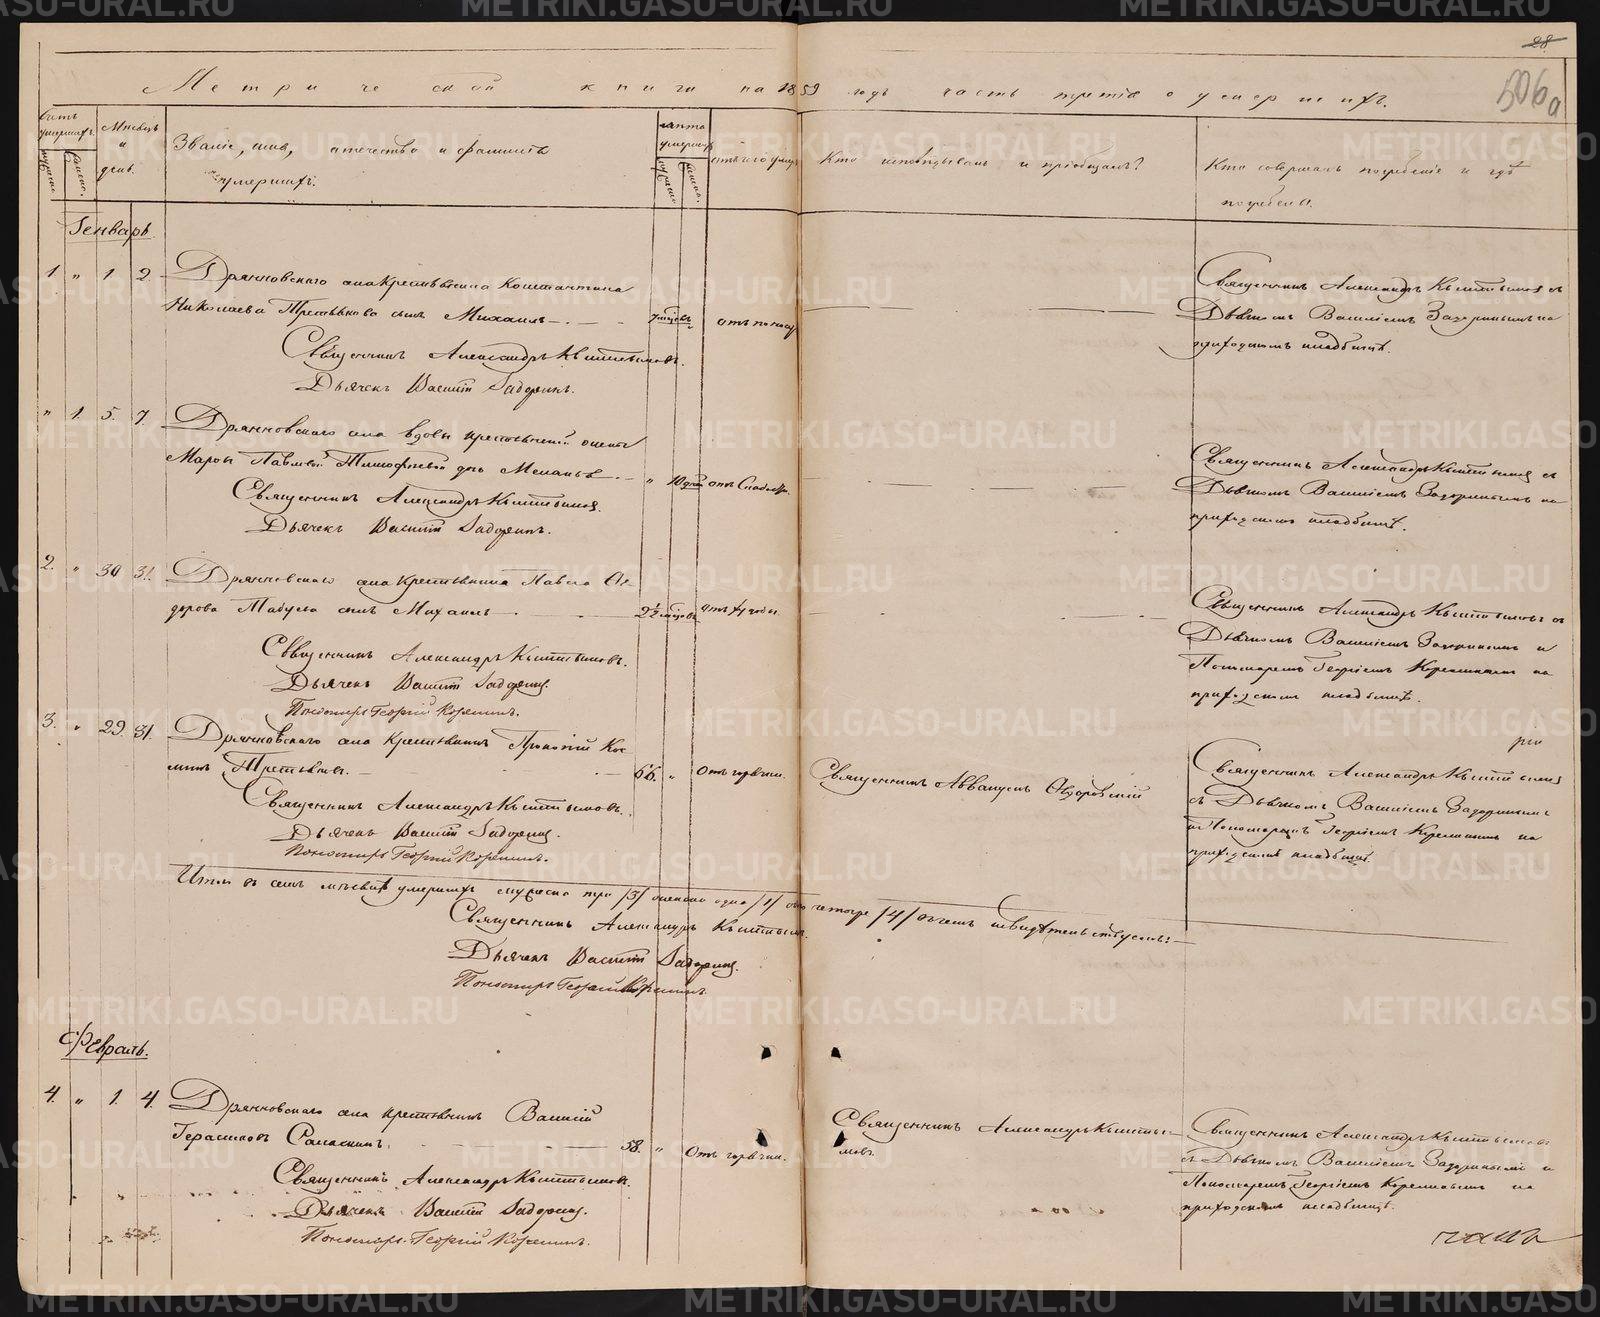 28.
506а
Метрической книги на 1859 годъ часть третія о умершихъ.
Счетъ умершихъ.
Мѣсяцъ и день.
Званіе, имя, отечество и фамилія умершихъ.
Лѣта умершихъ
отъ чего умеръ
Кто исповѣдывалъ и пріобщалъ?
Кто совершалъ погребеніе и гдѣ погребены.
Генварь
1. " 1 2
Дрянновскаго села крестьянина Константина
Николаева Третьякова сынъ Михаилъ
7 мѣсяцовъ
отъ поносу
Священникъ Александръ Кыштымовъ съ
Дьячкомъ Василіемъ Задоринымъ на
приходскомъ кладбищѣ.
Священникъ Александръ Кыштымовъ.
Дьячекъ Василій Задоринъ.
" 1. 5. 7.
Дрянновскаго села вдовы крестьянской жены
Марѳы Павловой Тимофѣевой дочь Меланья
" 10 дней отъ слабости.
Священникъ Александръ Кыштымовъ съ
Дьячкомъ Василіемъ Задоринымъ на
приходскомъ кладбищѣ.
Священникъ Александръ Кыштымовъ.
Дьячекъ Василій Задоринъ.
2. " 30 31.
Дрянновскаго села крестьянина Павла Ѳе-
дорова сынъ Михаилъ
2½ мѣсяцовъ
Священникъ Александръ Кыштымовъ съ
Дьячкомъ Василіемъ Задоринымъ и
Пономаремъ Георгіемъ на
приходскомъ кладбищѣ.
Священникъ Александръ Кыштымовъ.
Дьячекъ Василій Задоринъ.
Пономарь Георгій
3. " 29 31.
Дрянновскаго села крестьянинъ Прокопій Кос-
минъ Третьяковъ.
66. "
Отъ горячки.
Священникъ Аввакумъ Ѳедоровскій
Священникъ Александръ Кыштымовъ
съ Дьячкомъ Василіемъ Задоринымъ
и Пономаремъ Георгіемъ на
приходскомъ кладбищѣ.
Священникъ Александръ Кыштымовъ.
Дьячекъ Василій Задоринъ.
Пономарь Георгій
Итого въ семъ мѣсяцѣ умершихъ мужеска три /3/ женска одна /1/ обоего четыре /4/ въ чемъ и свидѣтельствуемъ:
Священникъ Александръ Кыштымовъ.
Дьячекъ Василій Задоринъ.
Пономарь Георгій
Февраль.
4. " 1. 4.
Дрянновскаго села крестьянинъ Василій
Герасимовъ
58. "
Отъ горячки.
Священникъ Александръ Кышты-
мовъ.
Священникъ Александръ Кыштымовъ
съ Дьячкомъ Василіемъ Задоринымъ и
Пономаремъ Георгіемъ на
приходскомъ кладбищѣ.
Священникъ Александръ Кыштымовъ.
Дьячекъ Василій Задоринъ.
Пономарь Георгій
METRIKI.GASO-URAL.RU